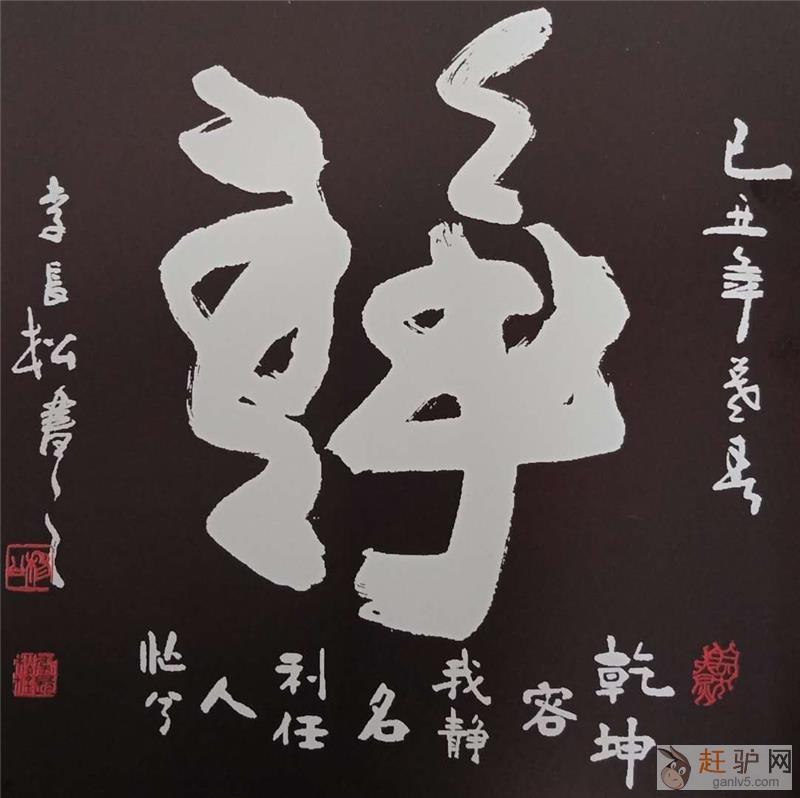 己丑年暮春
静
乾坤
容
我静
名
利任
人
忙兮
李長松書
赶驴网
ganlv5.com